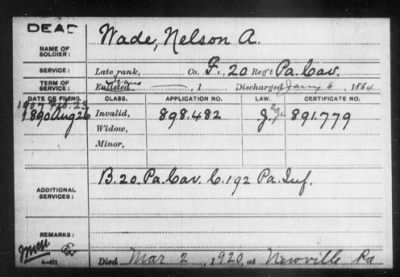 DEAD
NAME OF SOLDIER: Wade, Nelson A.
SERVICE: Late rank, Co. F, 20 Reg't Pa. Cav.
TERM OF SERVICE: Enlisted , 1 Discharged Jany 6, 1864
DATE OF FILING. CLASS. APPLICATION NO. LAW. CERTIFICATE NO.
1907 Feb. 23
1890 Aug 26 Invalid, 898.482 J. 891.779
Widow,
Minor,
ADDITIONAL SERVICES: B. 20. Pa. Cav. C. 192 Pa. Inf.
REMARKS:
Died Mar 2, 1920, at Newville Pa